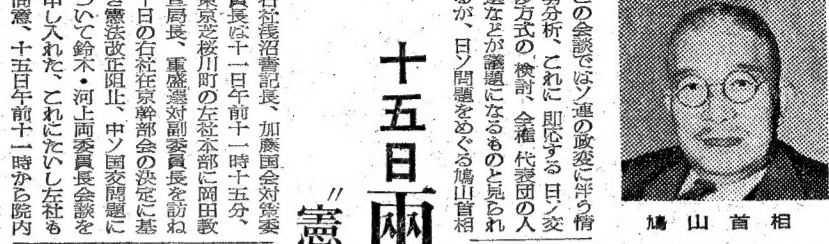 鳩山首相
この会談ではソ連の政変に伴う情
勢分析、これに即応する日ソ交
渉方式の検討、全権代表団の人
選などが議題になるものと見られ
るが、日ソ問題をめぐる鳩山首相
十五日兩
〃憲
右社浅沼書記長、加藤国会対策委
員長は十一日午前十一時十五分、
東京芝桜川町の左社本部に岡田教
宣局長、重盛選対副委員長を訪ね
十日の右社在京幹部会の決定に基
き憲法改正阻止、中ソ国交問題に
ついて鈴木・河上両委員長会談を
申し入れた、これにたいし左社も
同意、十五日午前十一時から院内